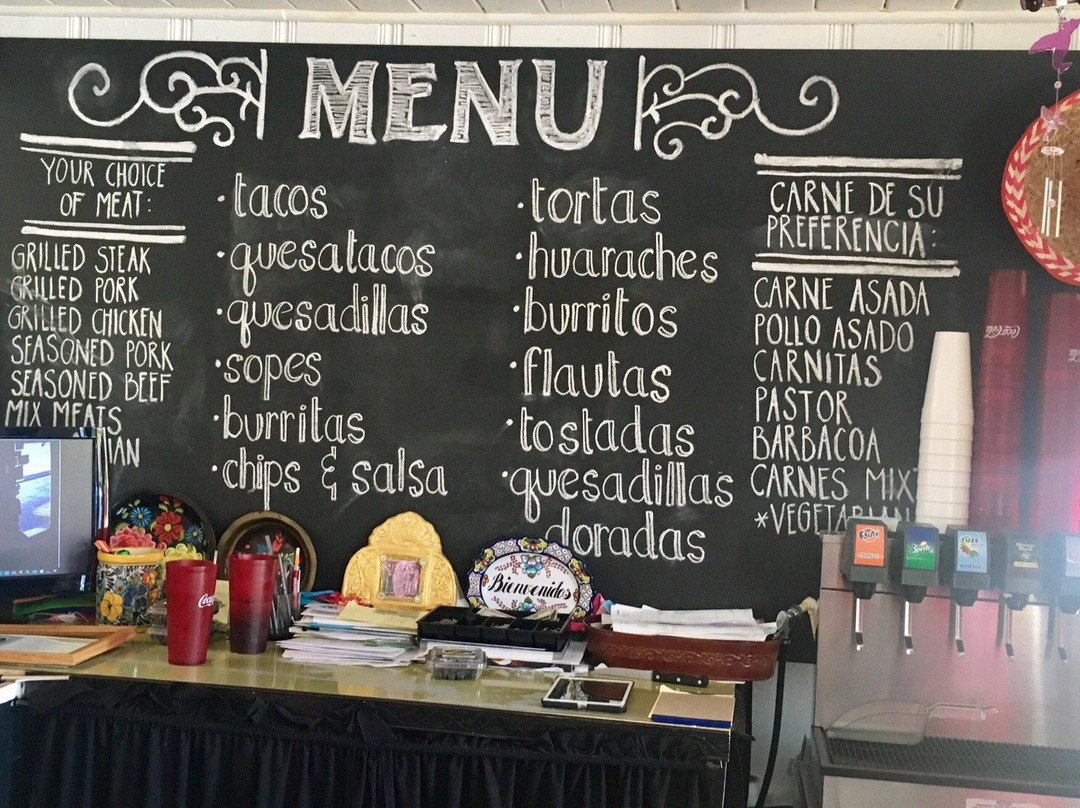 MENU
YOUR CHOICE
OF MEAT:
GRILLED STEAK
GRILLED PORK
GRILLED CHICKEN
SEASONED PORK
SEASONED BEEF
MIX MEATS
· tacos
· quesatacos
· quesadillas
· sopes
· burritas
· chips & salsa
· tortas
· huaraches
· burritos
· flautas
· tostadas
· quesadillas
doradas
CARNE DE SU
PREFERENCIA:
CARNE ASADA
POLLO ASADO
CARNITAS
PASTOR
BARBACOA
CARNES MIX
*VEGETARIAN
Bienvenidos
Coca-Cola
Fanta
Sprite